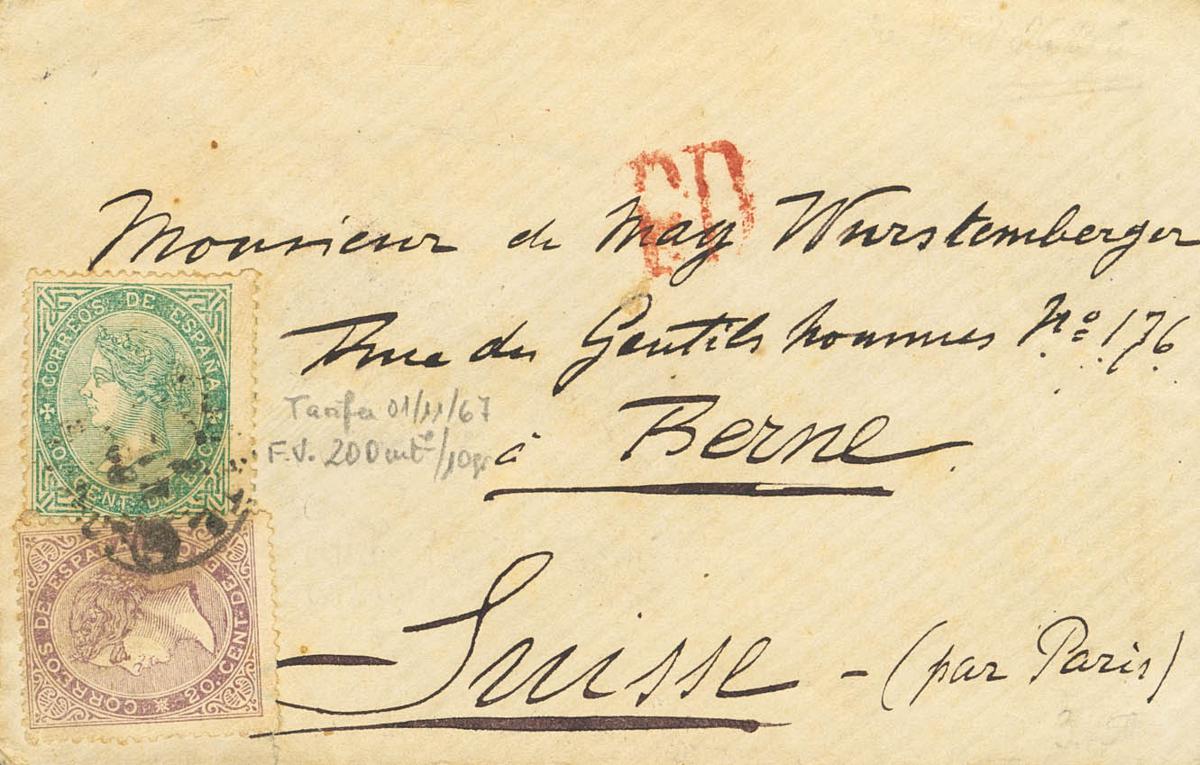 PD
Monsieur de May Wurstemberger
Rue des Gentils hommes No. 176
à Berne
Suisse - (par Paris)
CORREOS DE ESPAÑA
10 CENT. DE ESCO
Tarifa 01/11/67
F.V. 200 mts/10gr
CORREOS DE ESPAÑA
20 CENT. DE ESCO